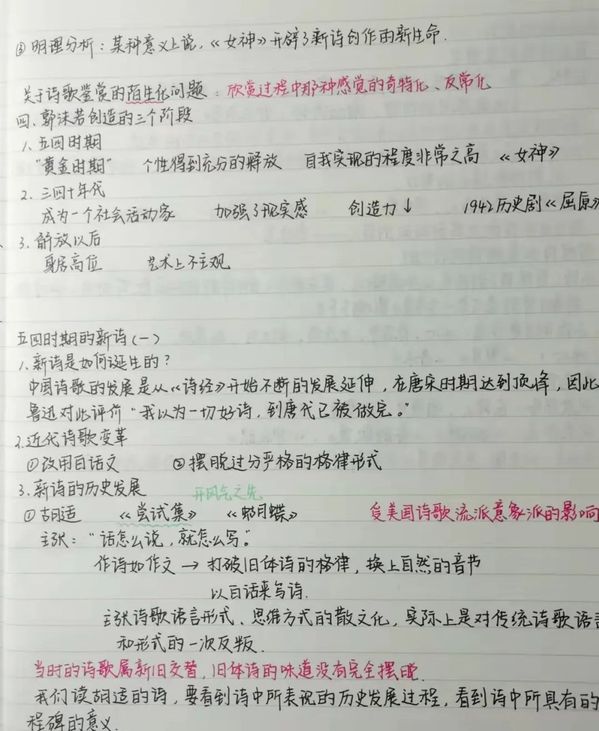 ③ 明理分析：某种意义上说，《女神》开辟了新诗创作的新生命.
关于诗歌鉴赏的陌生化问题：欣赏过程中那种感觉的奇特化、反常化
四、郭沫若创造的三个阶段
1. 五四时期
"黄金时期" 个性得到充分的释放 自我实现的程度非常之高 《女神》
2. 三四十年代
成为一个社会活动家 加强了现实感 创造力↓ 1942历史剧《屈原》
3. 解放以后
身居高位 艺术上不主观
五四时期的新诗(一)
1. 新诗是如何诞生的？
中国诗歌的发展是从《诗经》开始不断的发展延伸，在唐宋时期达到顶峰，因此
鲁迅对此评价"我以为一切好诗，到唐代已被做完。"
2. 近代诗歌变革
①改用白话文 ②摆脱过分严格的格律形式
3. 新诗的历史发展 开风气之先
①胡适 《尝试集》 《蝴蝶》 受美国诗歌流派意象派的影响
主张："话怎么说，就怎么写。"
作诗如作文 → 打破旧体诗的格律，换上自然的音节
以白话来写诗.
主张诗歌语言形式、思维方式的散文化，实际上是对传统诗歌语言
和形式的一次反叛.
当时的诗歌属新旧交替，旧体诗的味道没有完全摆脱.
我们读胡适的诗，要看到诗中所表现的历史发展过程，看到诗中所具有的
程碑的意义.